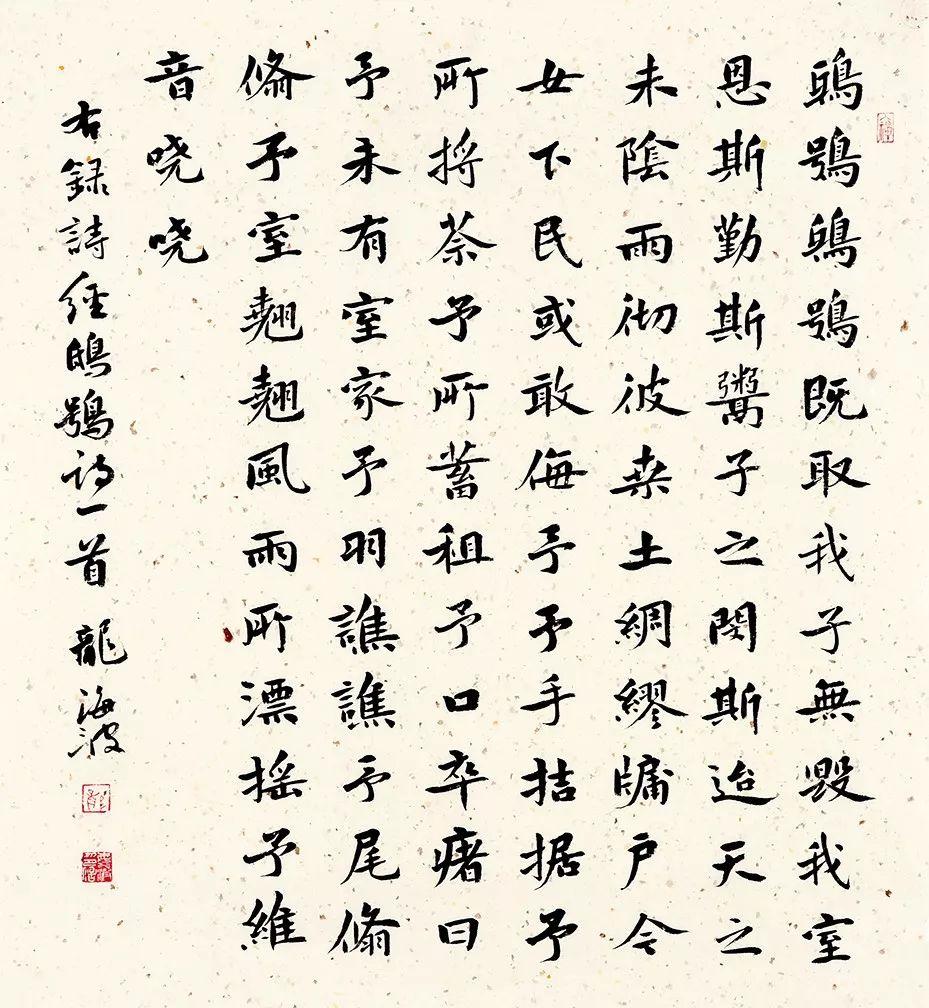 鴟鴞鴟鴞既取我子無毀我室
恩斯勤斯鬻子之閔斯迨天之
未陰雨彻彼桒土綢繆牗户令
女下民或敢侮予予手拮据予
所捋荼予所蓄租予口卒瘏曰
予未有室家予羽譙譙予尾翛
翛予室翹翹風雨所漂摇予維
音哓哓
右録詩經鴟鴞诗一首 龍海波